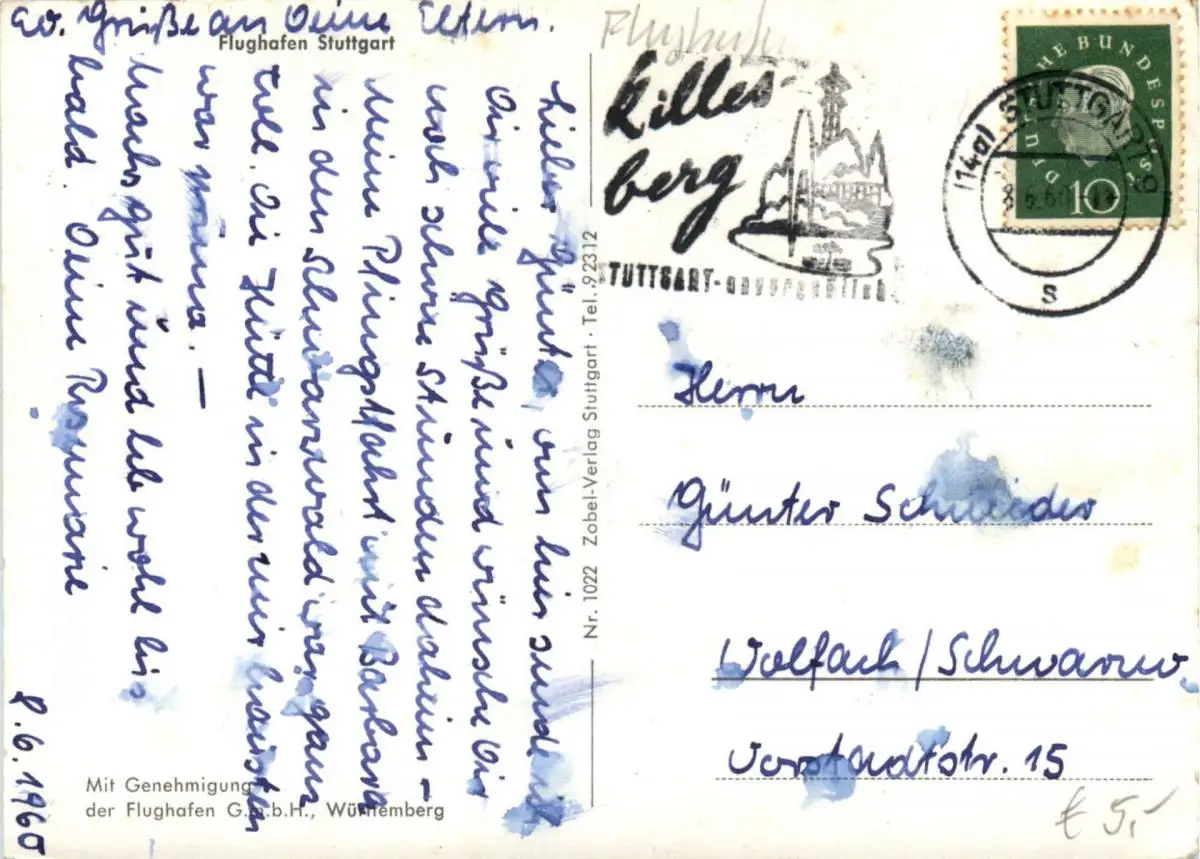 Ev. Grüße an Deine Eltern.
Flughafen Stuttgart
Lieber Günter, von hier sende ich
Dir viele Grüße und wünsche Dir
noch schöne Stunden daheim –
Meine Pfingstfahrt mit Barbara
in den Schwarzwald war ganz
toll. Die Hütte in der wir hausten
war prima. –
Machs gut und lebe wohl bis
bald. Deine Rosmarie
8.6.1960
Mit Genehmigung
der Flughafen G.m.b.H., Württemberg
Nr. 1022 Zobel-Verlag Stuttgart · Tel. 92312
Flughafen
Killes-
berg
STUTTGART-unvergeßlich
DEUTSCHE BUNDESPOST
10
(14a) STUTTGART 9
8.6.60
s
Herrn
Günter Schneider
Wolfach/Schwarzw.
Vorstadtstr. 15
€ 5,-